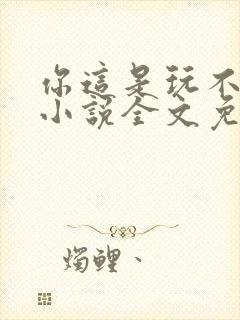 你這是玩不
小說全文免
燭鯉、